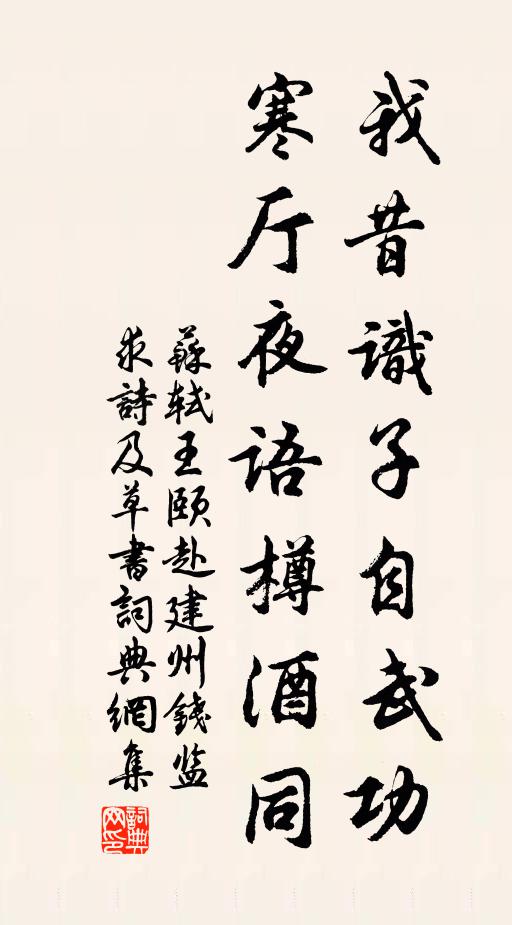 我昔識子自武功
寒厅夜语樽酒同
蘇轼王颐赴建州錢监
求詩及草書詞典網集
詞典网印